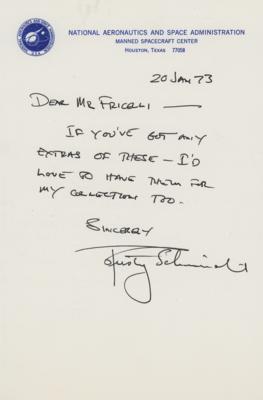 NATIONAL AERONAUTICS AND SPACE ADMINISTRATION
MANNED SPACECRAFT CENTER
HOUSTON, TEXAS 77058
20 JAN 73
DEAR MR FRICELLI —
IF YOU'VE GOT ANY
EXTRAS OF THESE – I'D
LOVE TO HAVE THEM FOR
MY COLLECTION TOO.
SINCERELY
Rusty Schweickart